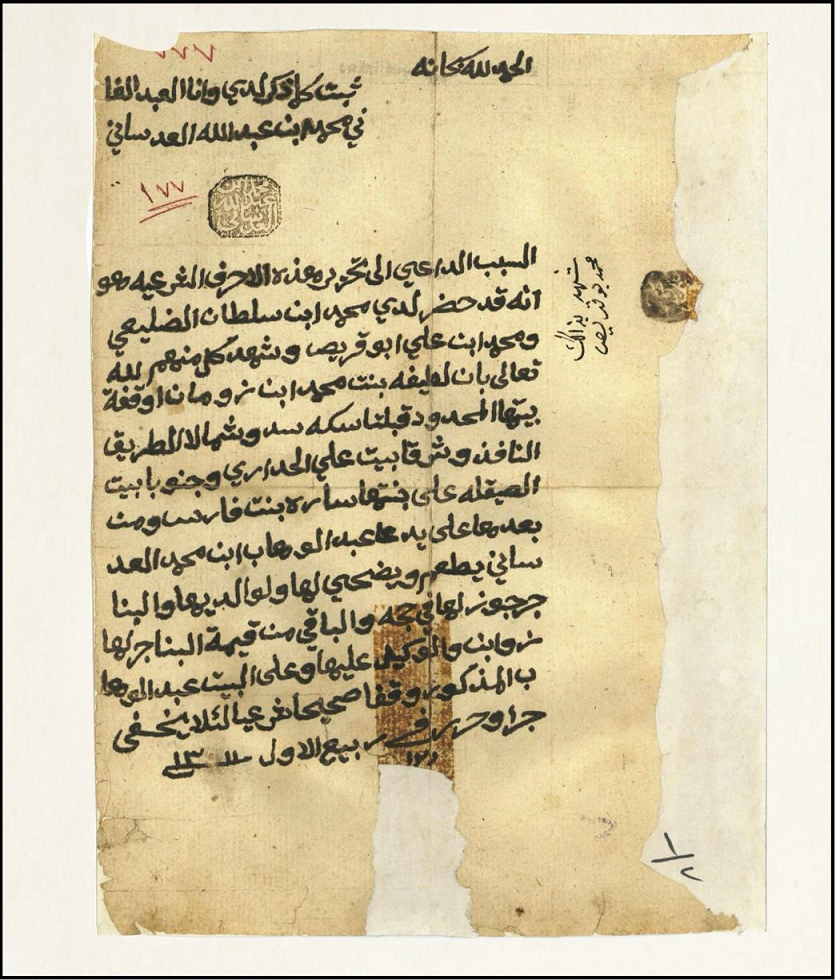 ٧٧٧
الحمد لله سبحانه
ثبت كلما ذكر لدي وانا العبد الفا
ني محمد ابن عبدالله العدساني
١٧٧
السبب الداعي الى تحرير هذه الاحرف الشرعيه هو
انه قد حضر لدي محمد ابن سلطان الضليعي
ومحمد ابن علي ابو قريص وشهد كل منهم لله
تعالى بان لطيفه بنت محمد ابن زومان اوقفة
بيتها المحدود قبلتا سكه سد وشمالا الطريق
النافذ وشرقا بيت علي الحداري وجنوبا بيت
الصيقله على بنتها ساره بنت فارس ومن
بعدها على يد عبد الوهاب ابن محمد العد
ساني يطعم ويضحي لها ولوالديها والبنا
جرجوز لها في حجه والباقي من قيمة البنا جر لها
زوابن والوكيل عليها وعلى البيت عبد الوها
ب المذكور وقفا صحيحا شرعيا لئلا يخفى
جرا وحرر في ربيع الاول سنة ١٣
شهد بذالك
محمد بو قريص
١
٢